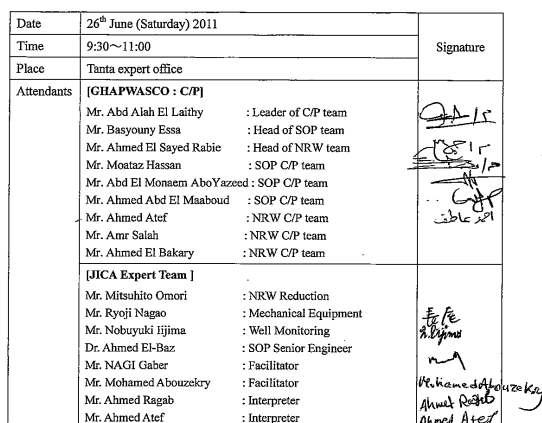 Date 26th June (Saturday) 2011
Time 9:30~11:00 Signature
Place Tanta expert office
Attendants [GHAPWASCO : C/P]
Mr. Abd Alah El Laithy : Leader of C/P team
Mr. Basyouny Essa : Head of SOP team
Mr. Ahmed El Sayed Rabie : Head of NRW team
Mr. Moataz Hassan : SOP C/P team
Mr. Abd El Monaem AboYazeed : SOP C/P team
Mr. Ahmed Abd El Maaboud : SOP C/P team
Mr. Ahmed Atef : NRW C/P team احمد عاطف
Mr. Amr Salah : NRW C/P team
Mr. Ahmed El Bakary : NRW C/P team
[JICA Expert Team ]
Mr. Mitsuhito Omori : NRW Reduction
Mr. Ryoji Nagao : Mechanical Equipment 長尾
Mr. Nobuyuki Iijima : Well Monitoring n.Iijima
Dr. Ahmed El-Baz : SOP Senior Engineer
Mr. NAGI Gaber : Facilitator
Mr. Mohamed Abouzekry : Facilitator Mohamed Abouzekry
Mr. Ahmed Ragab : Interpreter Ahmed Ragab
Mr. Ahmed Atef : Interpreter Ahmed Atef